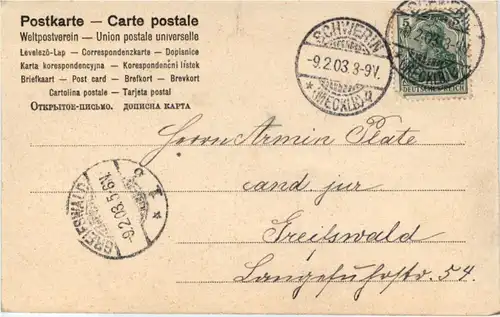 Postkarte — Carte postale
Weltpostverein — Union postale universelle
Levelező-Lap — Correspondenzkarte — Dopisnice
Karta korespondencyjna — Korespondenční lístek
Briefkaart — Post card — Brefkort — Brevkort
Cartolina postale — Tarjeta postal
Открытое-письмо. дописна карта
SCHWERIN
-9.2.03.8-9V.
* (MECKLB)
5
DEUTSCHES REICH
SCHWERIN
(MECKLB)
Herrn Armin Plate
cand. jur
Greifswald
Langefuhrstr. 54.
GREIFSWALD
-9.2.03.5-6N.